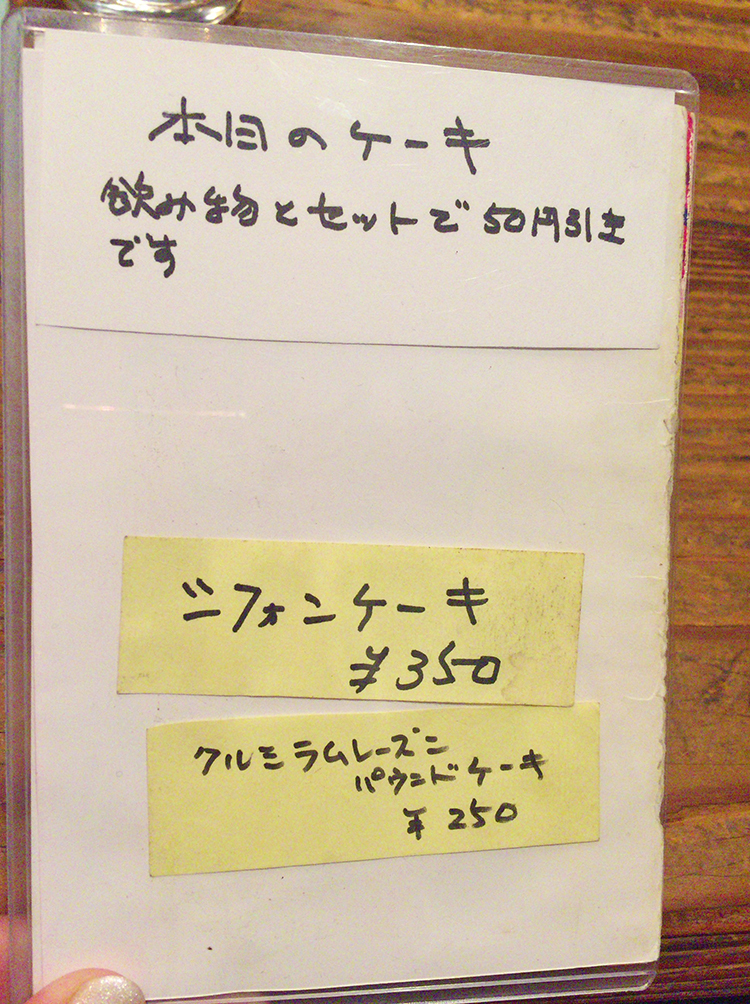 本日のケーキ
飲み物とセットで50円引き
です
シフォンケーキ
¥350
クルミラムレーズン
パウンドケーキ
¥250